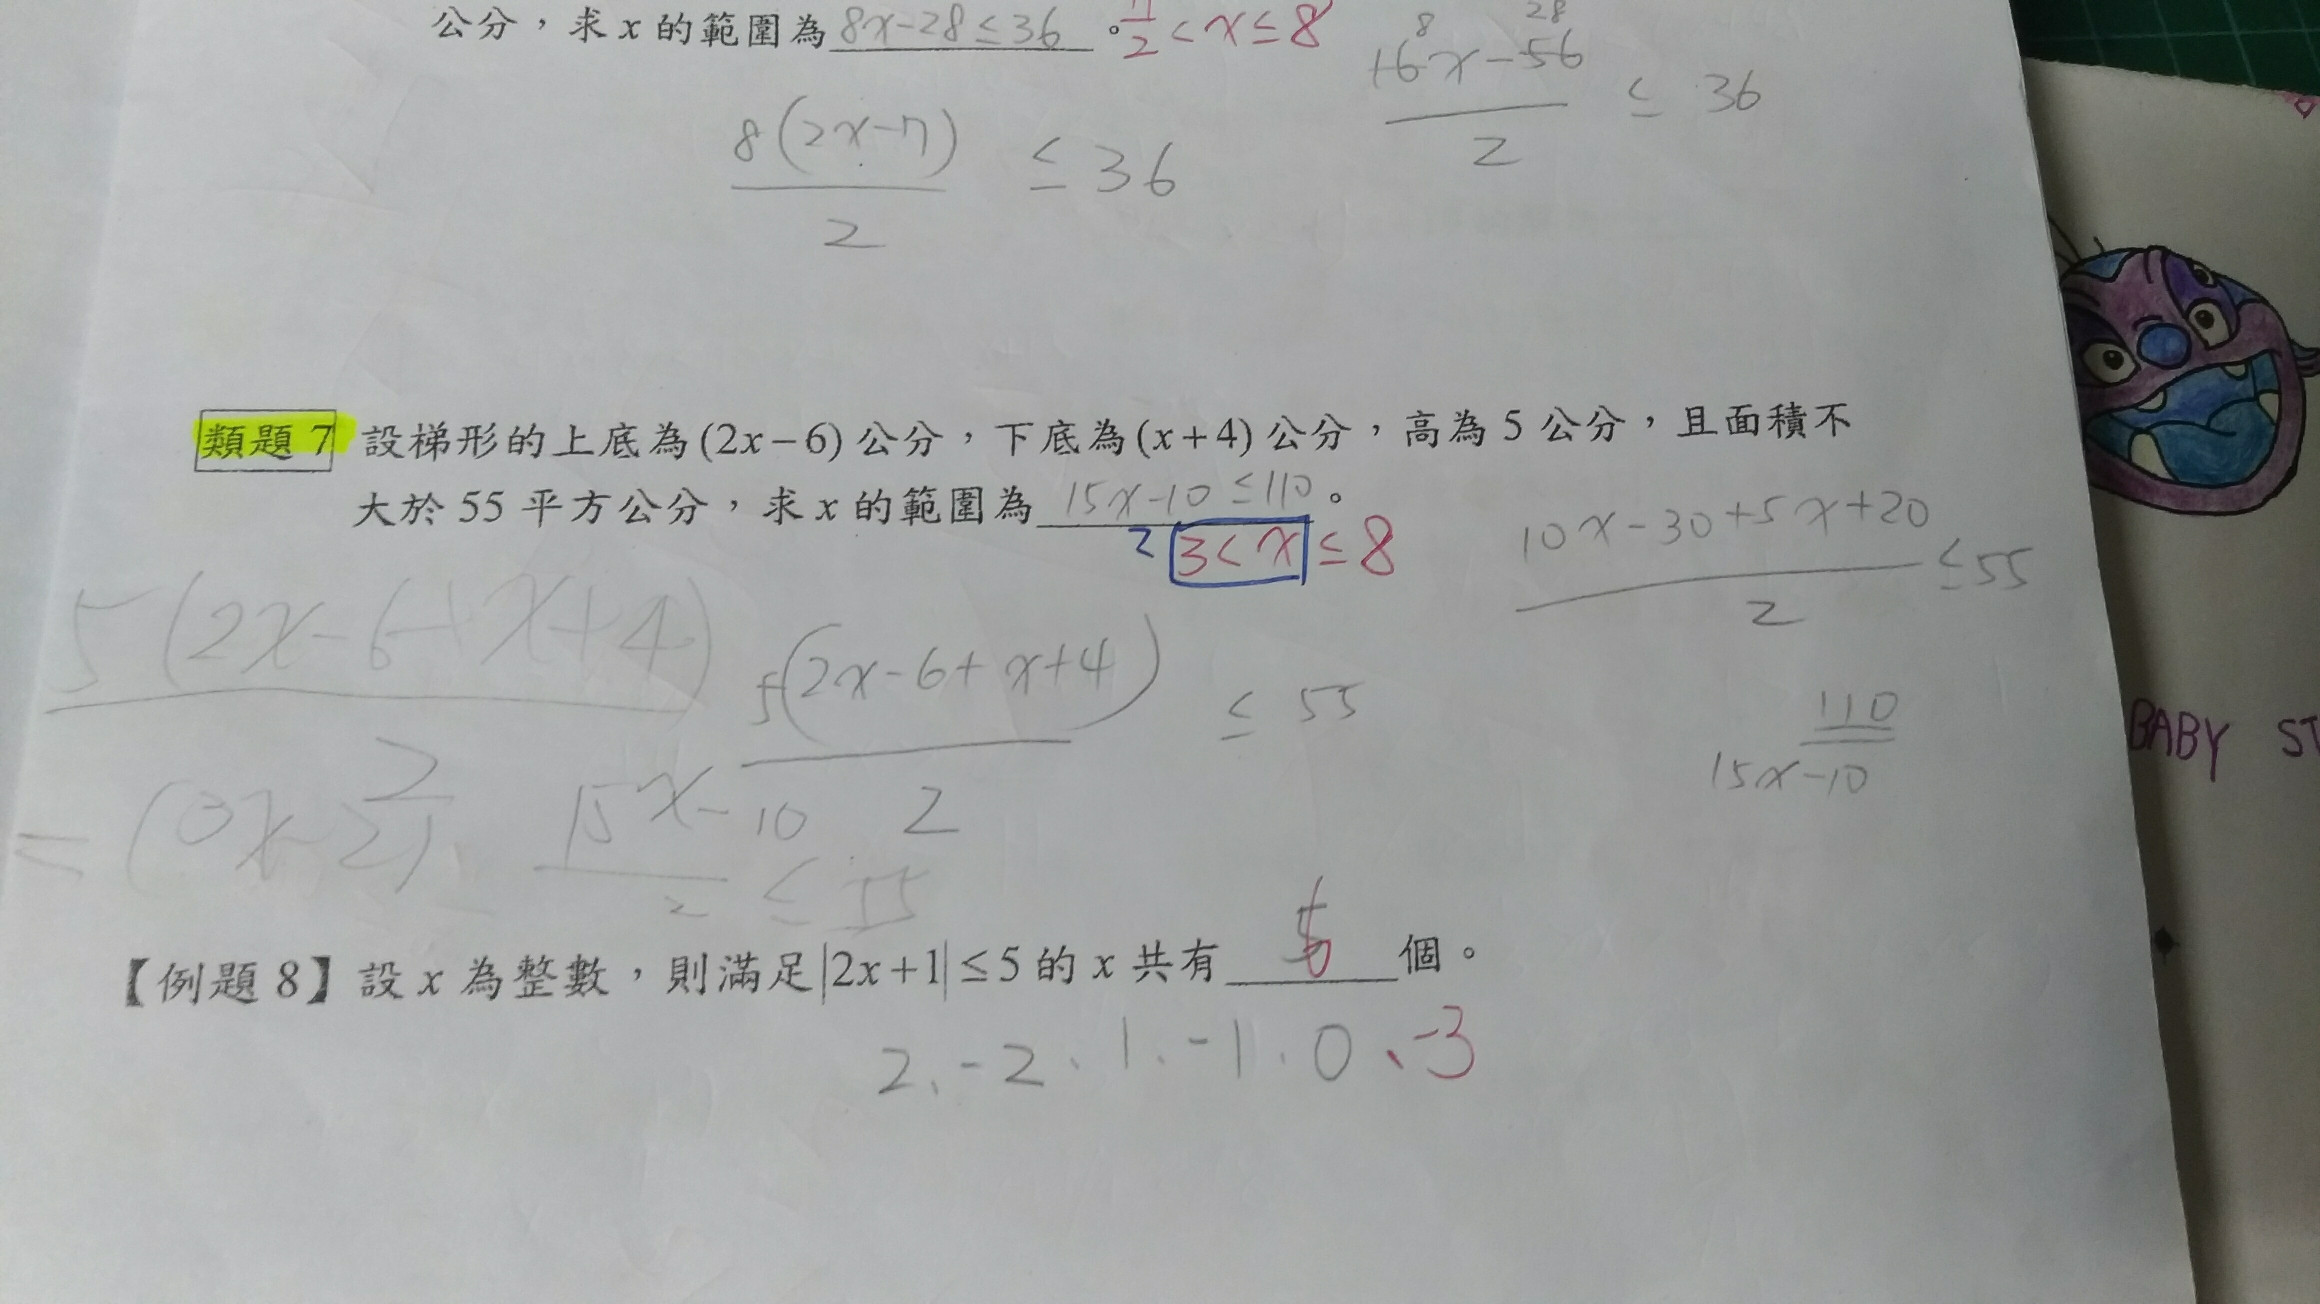 公分，求x的範圍為8x-28≤36。11/2<x≤8
8 28
16x-56/2 ≤ 36
8(2x-7)/2 ≤36
類題7 設梯形的上底為(2x-6)公分，下底為(x+4)公分，高為5公分，且面積不
大於55平方公分，求x的範圍為15x-10≤110。
2 3<x≤8
10x-30+5x+20/2 ≤55
5(2x-6+x+4)/2
5(2x-6+x+4)/2 ≤ 55
110
15x-10
BABY ST
15x-10/2 ≤ 55
【例題8】設x為整數，則滿足|2x+1|≤5的x共有6個。
2、-2、1、-1、0、-3